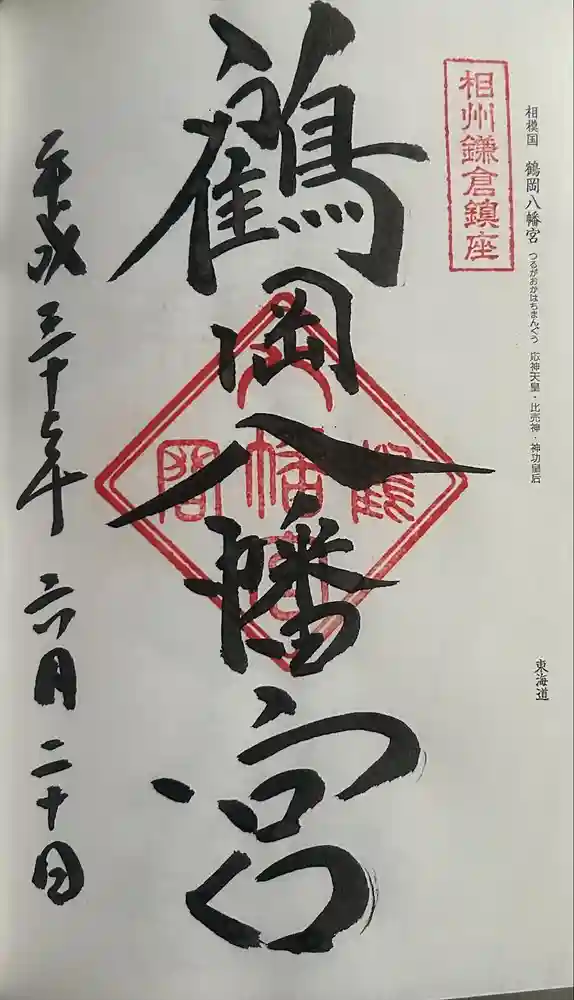 相模国 鶴岡八幡宮 つるがおかはちまんぐう 応神天皇・比売神・神功皇后
東海道
相州鎌倉鎮座
鶴岡八幡宮
鶴
八幡宮
岡
平成二十七年 六月 二十日